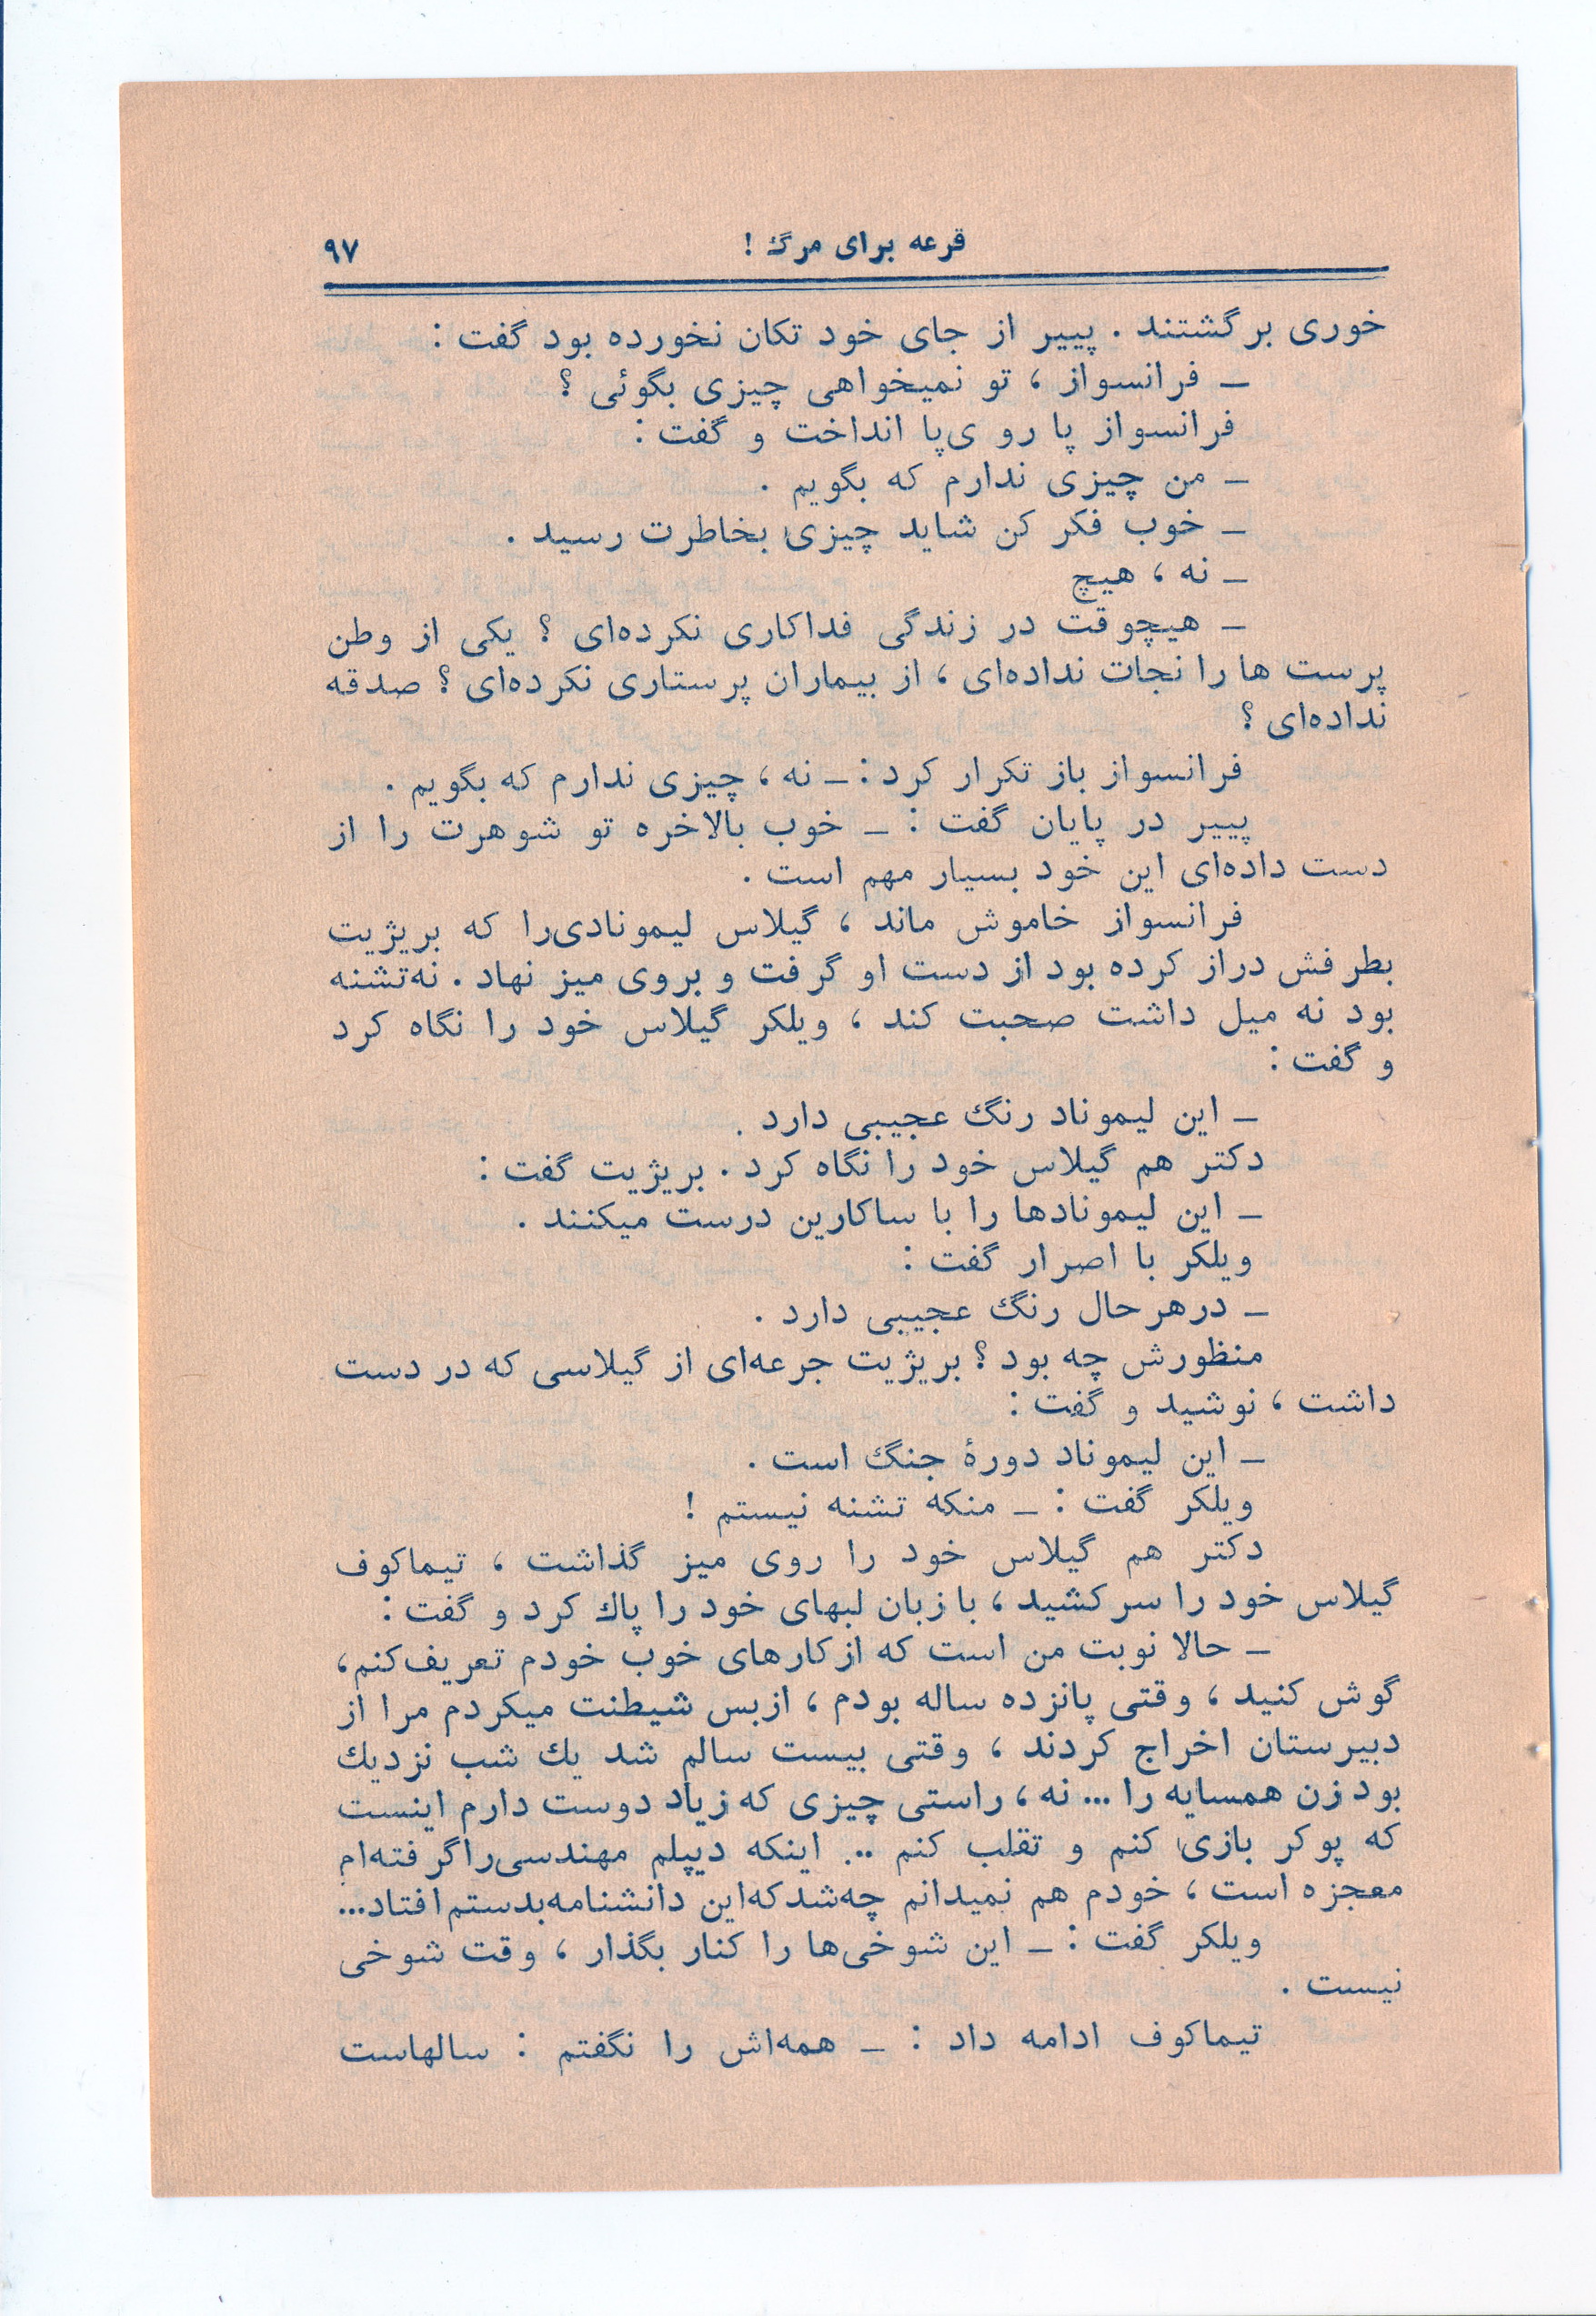 قرعه برای مرگ ! ۹۷
خوری برگشتند . پییر از جای خود تکان نخورده بود گفت :
ــ فرانسواز ، تو نمیخواهی چیزی بگوئی ؟
فرانسواز پا روی‌پا انداخت و گفت :
ــ من چیزی ندارم که بگویم .
ــ خوب فکر کن شاید چیزی بخاطرت رسید .
ــ نه ، هیچ
ــ هیچوقت در زندگی فداکاری نکرده‌ای ؟ یکی از وطن
پرست ها را نجات نداده‌ای ، از بیماران پرستاری نکرده‌ای ؟ صدقه
نداده‌ای ؟
فرانسواز باز تکرار کرد : ــ نه ، چیزی ندارم که بگویم .
پییر در پایان گفت : ــ خوب بالاخره تو شوهرت را از
دست داده‌ای این خود بسیار مهم است .
فرانسواز خاموش ماند ، گیلاس لیمونادی‌را که بریژیت
بطرفش دراز کرده بود از دست او گرفت و بروی میز نهاد . نه‌تشنه
بود نه میل داشت صحبت کند ، ویلکر گیلاس خود را نگاه کرد
و گفت :
ــ این لیموناد رنگ عجیبی دارد .
دکتر هم گیلاس خود را نگاه کرد . بریژیت گفت :
ــ این لیمونادها را با ساکارین درست میکنند .
ویلکر با اصرار گفت :
ــ درهرحال رنگ عجیبی دارد .
منظورش چه بود ؟ بریژیت جرعه‌ای از گیلاسی که در دست
داشت ، نوشید و گفت :
ــ این لیموناد دورهٔ جنگ است .
ویلکر گفت : ــ منکه تشنه نیستم !
دکتر هم گیلاس خود را روی میز گذاشت ، تیماکوف
گیلاس خود را سرکشید ، با زبان لبهای خود را پاك کرد و گفت :
ــ حالا نوبت من است که از کارهای خوب خودم تعریف‌کنم،
گوش کنید ، وقتی پانزده ساله بودم ، ازبس شیطنت میکردم مرا از
دبیرستان اخراج کردند ، وقتی بیست سالم شد یك شب نزدیك
بود زن همسایه را ... نه ، راستی چیزی که زیاد دوست دارم اینست
که پوکر بازی کنم و تقلب کنم ... اینکه دیپلم مهندسی‌راگرفته‌ام
معجزه است ، خودم هم نمیدانم چه‌شدکه‌این دانشنامه‌بدستم‌افتاد...
ویلکر گفت : ــ این شوخی‌ها را کنار بگذار ، وقت شوخی
نیست .
تیماکوف ادامه داد : ــ همه‌اش را نگفتم : سالهاست